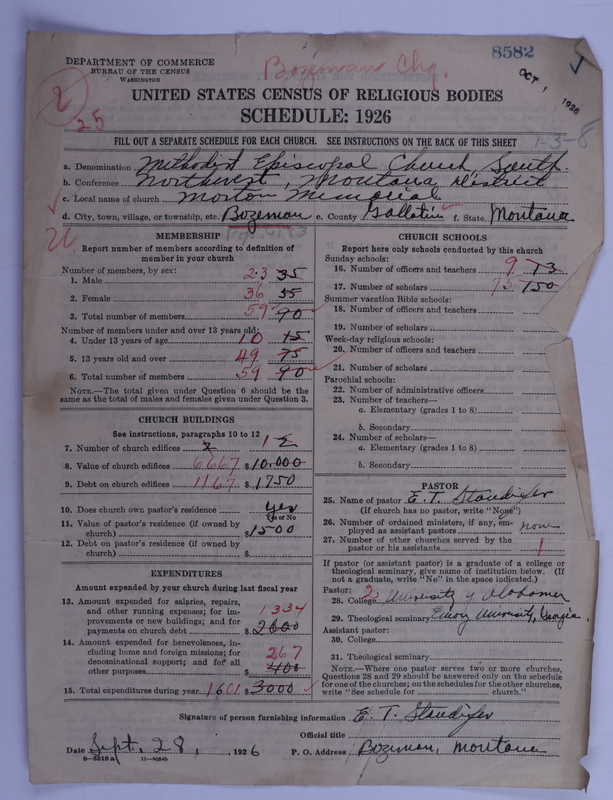 8582
DEPARTMENT OF COMMERCE
BUREAU OF THE CENSUS
WASHINGTON
Bozeman Chg.
OCT 1 1926
25
UNITED STATES CENSUS OF RELIGIOUS BODIES
SCHEDULE: 1926
FILL OUT A SEPARATE SCHEDULE FOR EACH CHURCH. SEE INSTRUCTIONS ON THE BACK OF THIS SHEET
1-3-8
a. Denomination Methodist Episcopal Church, South.
b. Conference Northwest, Montana District
c. Local name of church Morton Memorial
d. City, town, village, or township, etc. Bozeman e. County Gallatin f. State Montana
MEMBERSHIP
Report number of members according to definition of
member in your church
Number of members, by sex:
1. Male 23 35
2. Female 36 55
3. Total number of members 59 90
Number of members under and over 13 years old:
4. Under 13 years of age 10 15
5. 13 years old and over 49 75
6. Total number of members 59 90
NOTE.—The total given under Question 6 should be the
same as the total of males and females given under Question 3.
CHURCH BUILDINGS
See instructions, paragraphs 10 to 12
7. Number of church edifices 2 1 2
8. Value of church edifices 6667 $10.000
9. Debt on church edifices 1167 $1750
10. Does church own pastor's residence yes
Yes or No
11. Value of pastor's residence (if owned by
church) $1500
12. Debt on pastor's residence (if owned by
church) $
EXPENDITURES
Amount expended by your church during last fiscal year
13. Amount expended for salaries, repairs,
and other running expenses; for im-
provements or new buildings; and for
payments on church debt 1334 $2600
14. Amount expended for benevolences, in-
cluding home and foreign missions; for
denominational support; and for all
other purposes 267 $400
15. Total expenditures during year 1601 $3000
CHURCH SCHOOLS
Report here only schools conducted by this church
Sunday schools:
16. Number of officers and teachers 9 13
17. Number of scholars 75 150
Summer vacation Bible schools:
18. Number of officers and teachers
19. Number of scholars
Week-day religious schools:
20. Number of officers and teachers
21. Number of scholars
Parochial schools:
22. Number of administrative officers
23. Number of teachers—
a. Elementary (grades 1 to 8)
b. Secondary
24. Number of scholars—
a. Elementary (grades 1 to 8)
b. Secondary
PASTOR
25. Name of pastor E. T. Standifer
(If church has no pastor, write "None")
26. Number of ordained ministers, if any, em-
ployed as assistant pastors none
27. Number of other churches served by the
pastor or his assistants 1
If pastor (or assistant pastor) is a graduate of a college or
theological seminary, give name of institution below. (If
not a graduate, write "No" in the space indicated.)
Pastor: 2
28. College University of Alabama
29. Theological seminary Emory University, Georgia.
Assistant pastor:
30. College
31. Theological seminary
NOTE.—Where one pastor serves two or more churches,
Questions 28 and 29 should be answered only on the schedule
for one of the churches; on the schedules for the other churches,
write "See schedule for church."
Signature of person furnishing information E. T. Standifer
Official title
Date Sept. 28, 1926 P. O. Address Bozeman, Montana
8-5318a 11-9184b